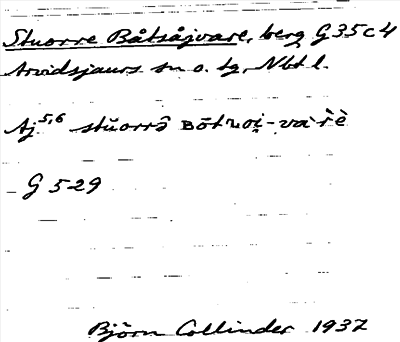 Stuorre Båtsåjvare, berg G35c4
Arvidsjaurs sn o. tg, Nbt l.
Aj 5,6 stŭorrə̑ ʙōtsoi̯-vàrè
- G 529
Björn Collinder 1937